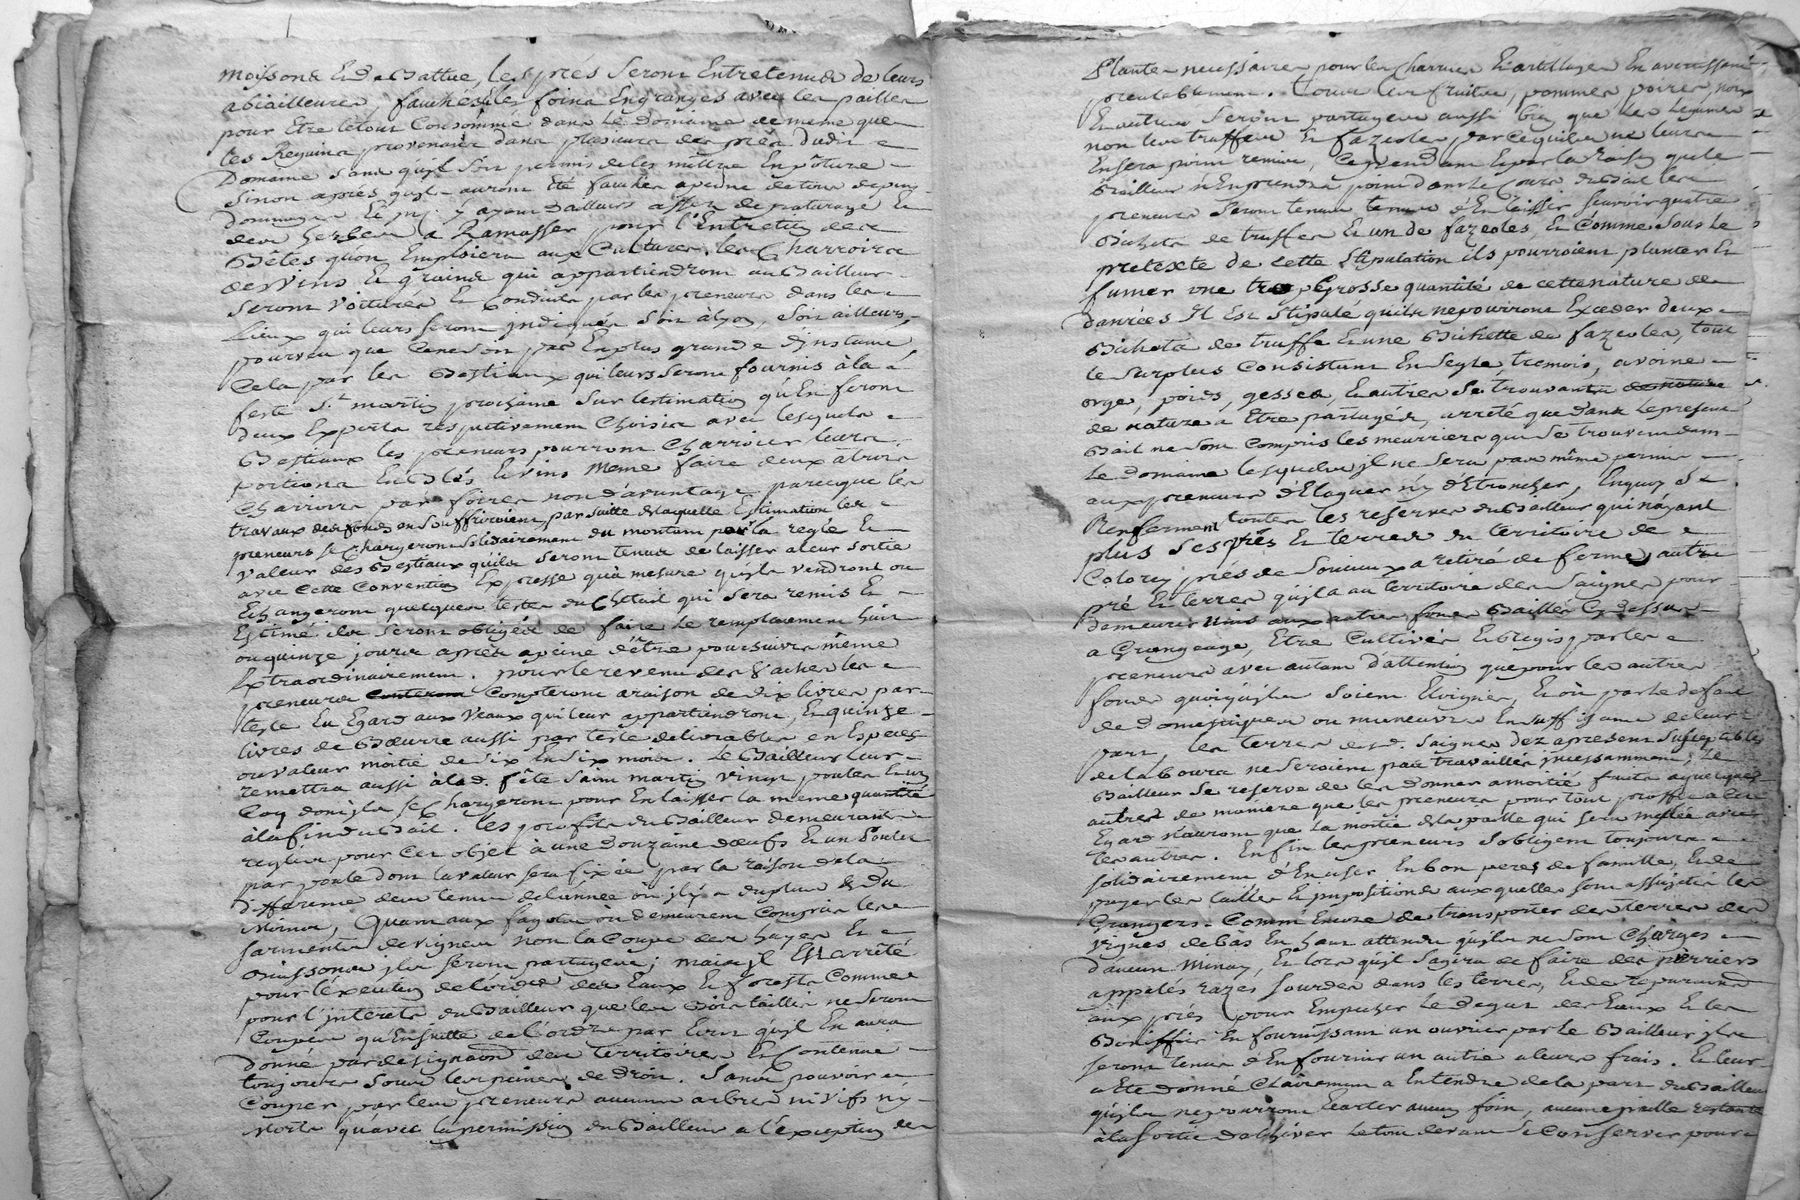 moissons Et de Battue, les prés seront Entretenus de leurs
abiailleures, fauchés, les foins Engranges avec les pailles
pour Etre letout Consommé dans Le Domaine de meme que
les Reguins provenant dans plusieurs des prés dudit
Domaine sans quyl soit permis de les mettre En pâture
sinon aprés quyls auront Eté fauchés apeine de tous depens
dommages Et jnt. y ayant dailleurs assez de paturage Et
des herbes a Ramasser pour l'Entretien des
Bêtes quon Emploiera aux Cultures, les Charroirs
des vins Et grains qui appartiendront au Bailleur
seront voiturés Et Conduits par les preneurs dans les
Lieux qui leurs seront jndiqués soit àlyon, soit ailleurs,
pourveu que Ce ne soit pas En plus grande distance
Cela par les Bestiaux qui leurs seront fournis àla
feste St. martin prochaine sur lestimation qu'En feront
deux Experts respectivement Choisis avec lesquels
Bestiaux les preneurs pourront Charroier leurs
portions En Blés Et vins meme faire deux autres
Charrois par foires non d'avantage parceque les
travaux des fonds en souffriroient, par suitte de laquelle Estimation les
preneurs se Chargeront solidairement du montant pour la regle Et
valeur des Bestiaux quils seront tenus de laisser a leur sortie
avec Cette Convention Expresse qu'à mesure quyls vendront ou
Echangeront quelques testes du Chetail qui sera remis Et
Estimé ils seront obligés de faire Le remplacement huit
ou quinze jours aprés apeine d'être poursuivis même
Extraordinairement. pour le revenu des vaches les
preneurs conteront Compteront araison de six livres par
teste Eu Egard aux veaux qui leur appartiendront, Et quinze
livres de Bœurre aussi par teste delivrables en Especes
ou valeur moitié de six En six mois. Le Bailleur leur
remettra aussi àlad. fête saint martin vingt poules Et un
Coq dont jls se Chargeront pour En laisser la meme quantité
àla fin du Bail. les profits du Bailleur demeurants
reglés pour Cet objet à une Douzaine d'œufs Et un Poulet
par poule dont la valeur sera fixée par la raison de la
difference des tems de lannée où jl y a du plus & du
Moins, Quant aux fagots où demeurent Compris les
sarments de vignes non la Coupe des hayes Et
Buissons jls seront partagés; mais jl Est arrêté
pour l'éxécution de lordre des Eaux Et forests Comme
pour l'jnterêt du Bailleur que les Bois taillis ne seront
Coupés qu'Ensuitte de l'ordre par Ecrit quyl En aura
donné par designaon des territoires Et Contenue
toujours sous les peines de Droit. sans pouvoir
Couper par les preneurs aucuns arbres ni vifs ny
Morts qu'avec la permission du Bailleur a l'exception des
Plantes necessaires pour les Charrues Et artillages En avertissant
prealablement. Tous les fruits, pommes poires, noix
Et autres seront partagés aussi bien que les legumes
non les truffes Et fazeoles parcequ'ils ne leurs
En sera point remise, Cependant Et par la Raison que le
Bailleur n'En prendra point dans le Cours du Bail les
preneurs seront tenus tenus d'En laisser scavoir quatre
Bichets de truffes Et un de fazeoles, Et Comme sous le
pretexte de cette stipulation ils pourroient planter Et
fumer une trop Grosse quantité de cette nature de
danrées Il Est stipulé quils ne pourront Exceder deux
Bichets de truffe Et une Bichette de fazeoles, tout
le surplus Consistant En seigle, tremois, avoine
orge, poids, gesses, Et autres se trouvants de nature
de nature a Etre partagés, arrêté que dans le present
Bail ne sont Compris les meurriers qui se trouvent dans
Le Domaine lesquels jl ne sera pas même permis
aux preneurs d'Elaguer n'y d'Etroncher, Enquoy se
Renferment toutes les reserves du Bailleur qui n'ayant
plus ses prés Et terres du territoire de
Colorey prés de Souciaux a retiré de ferme autre
pré Et terres quyl a au territoire des Saignes pour
demeurer unis aux autres fonds Baillés Cy dessus
a Grangeage, Etre Cultivés Et regis par les
preneurs avec autant d'attention que pour les autres
fonds quoiquyls soient Eloignés, Et où par le defaut
de Domestiques ou maneuvres En suffisance de leur
part, les terres desd. Saignes dez apresent susceptibles
de labours ne seroient pas travaillés jncessamment, le
Bailleur se reserve de les donner amoitié fruits a quelques
autres de maniere que les preneurs pour tout proffit a Cet
Egard n'auront que la moitié de la paille qui sera meslée avec
les autres. En fin les preneurs s'obligent toujours
solidairement d'En user En bon peres de famille, Et de
payer les tailles Et jmpositions auxquelles sont assujetis les
Grangers. Comm'Encore de transporter des terres des
vignes de bas En haut attendu quyls ne sont Chargés
d'aucun Minage, Et lors quyl sagira de faire des pierriers
appelés razes sourdes dans les terres, Et de repurains
aux prés pour Empecher le Degat des Eaux Et les
Boniffier En fournissant un ouvrier par le Bailleur jls
seront tenus d'En fournir un autre a leurs frais. Et leur
a Eté donné Clairement a Entendre de la part du Bailleur
quyls ne pourront Ecarter aucun foin, aucune paille restante
àla sortie de lhiver le tout devant se Conserver pour